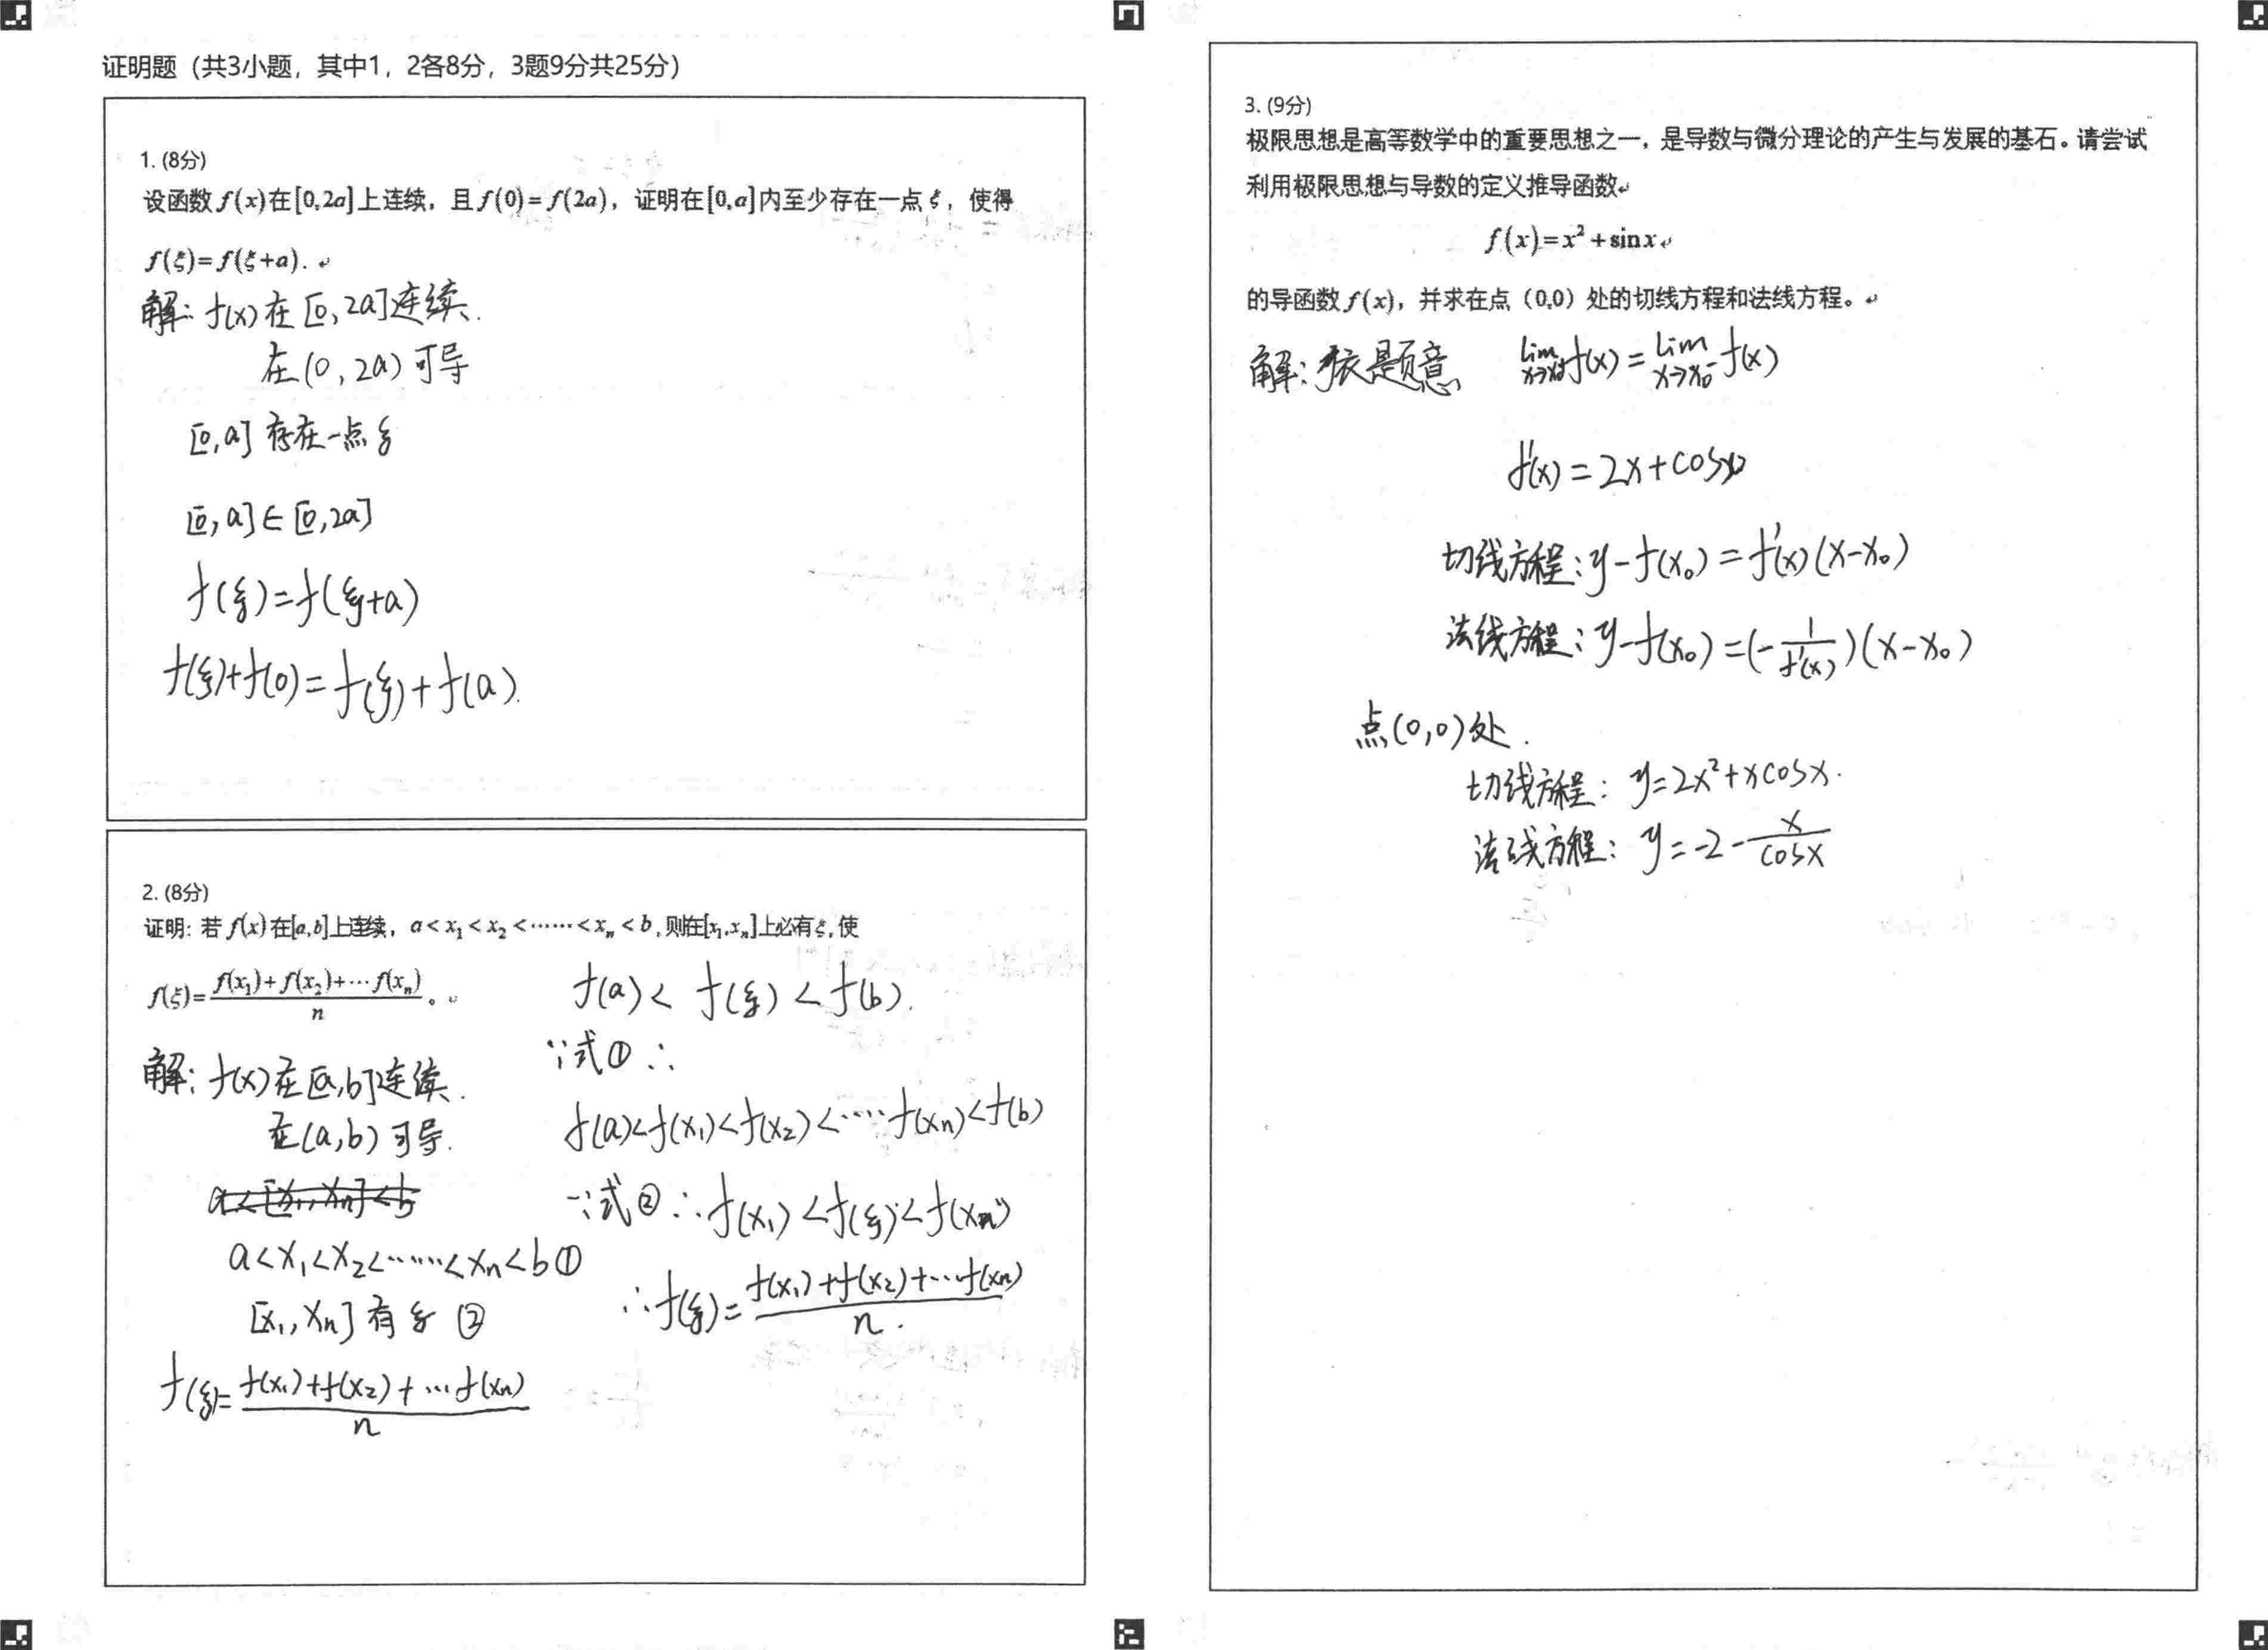 证明题（共3小题，其中1，2各8分，3题9分共25分）
1. (8分)
设函数 f(x) 在[0,2a]上连续，且 f(0) = f(2a)，证明在[0,a]内至少存在一点 ξ，使得
f(ξ)=f(ξ+a).
解: f(x) 在 [0, 2a]连续.
在(0, 2a) 可导
[0, a] 存在一点 ξ
[0, a] ∈ [0, 2a]
f(ξ)=f(ξ+a)
f(ξ)+f(0) = f(ξ)+f(a).
2. (8分)
证明: 若 f(x) 在[a,b]上连续，a < x₁ < x₂ < …… < xₙ < b, 则在[x₁,xₙ]上必有ξ, 使
f(ξ)= (f(x₁)+f(x₂)+⋯f(xₙ))/n 。
解: f(x) 在 [a,b]连续.
在(a,b) 可导.
a<x₁<x₂<……<xₙ<b ①
[x₁, xₙ] 有 ξ ②
f(ξ)= (f(x₁)+f(x₂)+…f(xₙ))/n
f(a) < f(ξ) < f(b).
∵式① ∴
f(a)<f(x₁)<f(x₂)<……f(xₙ)<f(b)
∵式② ∴f(x₁)<f(ξ)<f(xₙ)
∴f(ξ)= (f(x₁)+f(x₂)+…f(xₙ))/n.
3. (9分)
极限思想是高等数学中的重要思想之一，是导数与微分理论的产生与发展的基石。请尝试
利用极限思想与导数的定义推导函数
f(x)=x²+sinx
的导函数 f(x)，并求在点（0,0）处的切线方程和法线方程。
解: 依题意 lim x→x₀⁺ f(x) = lim x→x₀⁻ f(x)
f'(x) = 2x+cosx
切线方程: y-f(x₀) = f'(x)(x-x₀)
法线方程: y-f(x₀) =(-1/f'(x))(x-x₀)
点(0,0)处.
切线方程: y=2x²+xcosx.
法线方程: y=-2-x/cosx